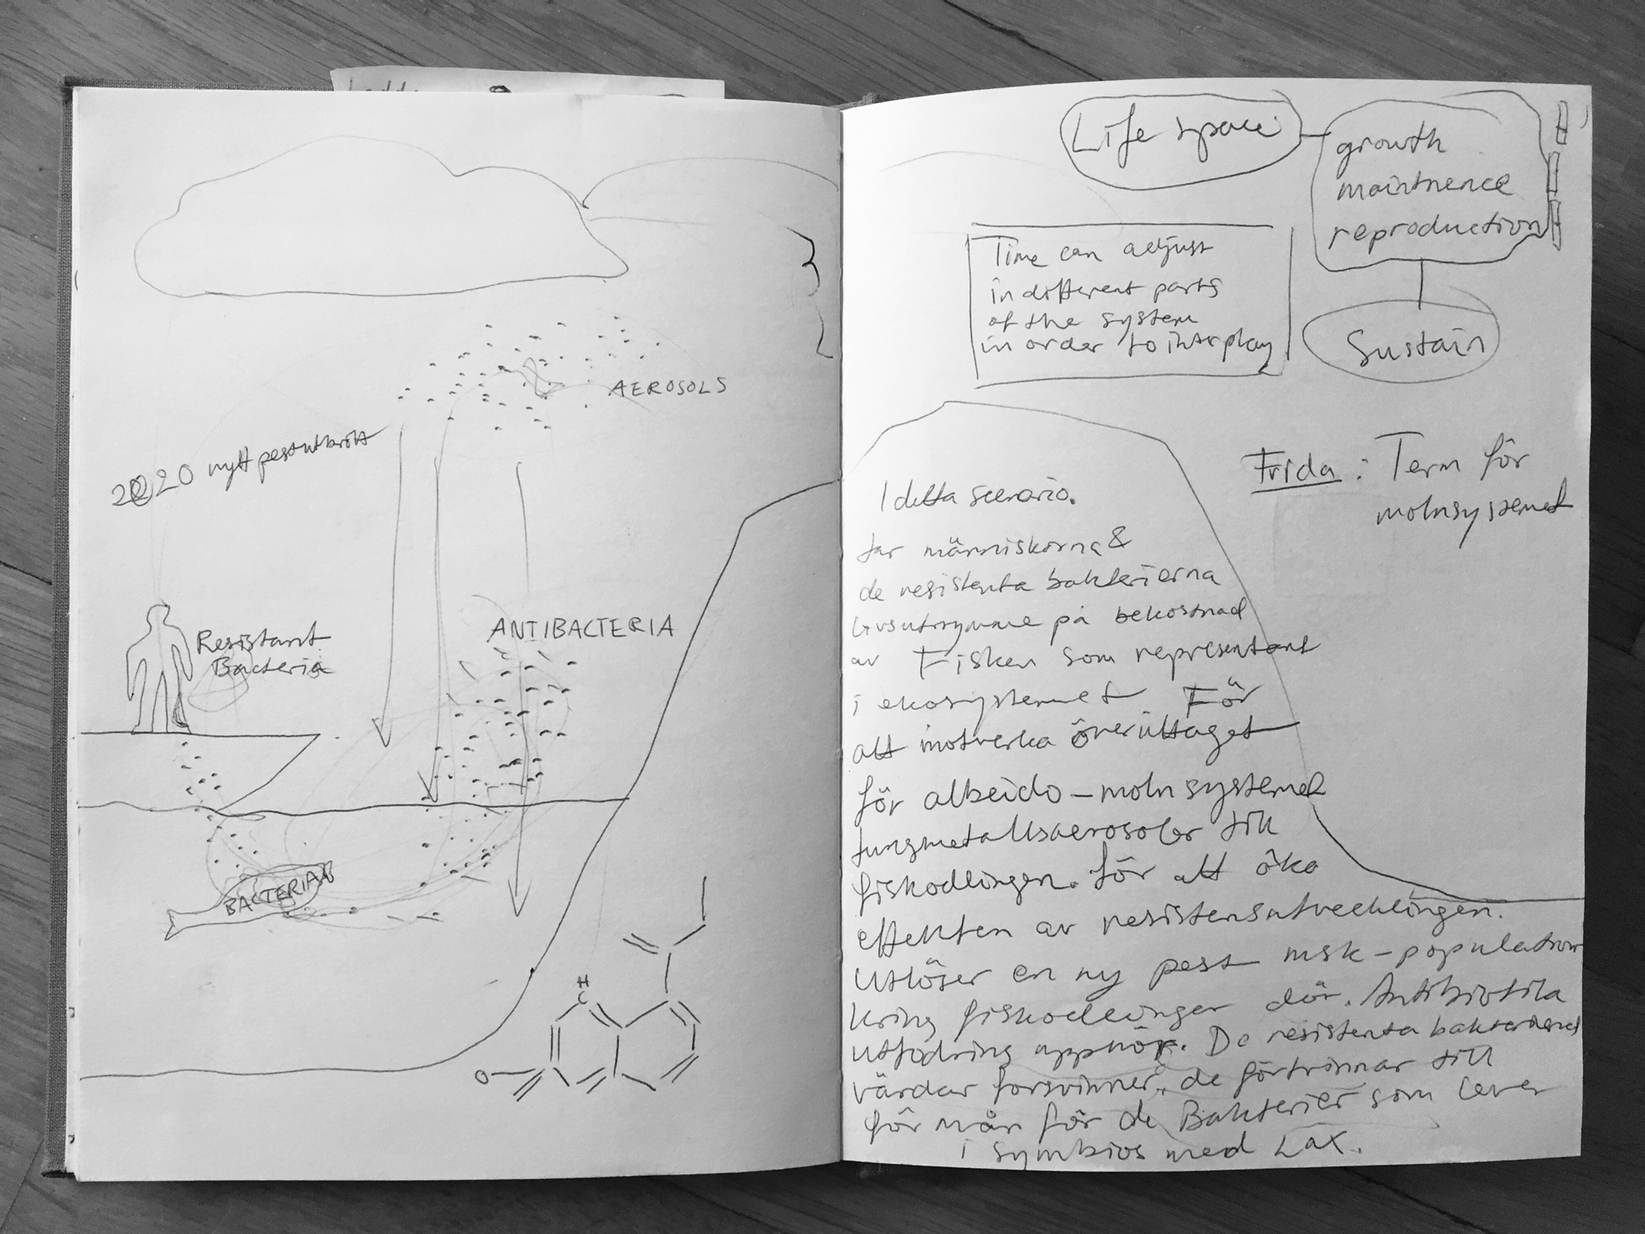 AEROSOLS
2020 nytt pestutbrott
Resistant
Bacteria
ANTIBACTERIA
BACTERIAN
H
C
O
Life space
growth
maintnence
reproduction
Time can adjust
in different parts
of the system
in order to interplay
Sustain
Frida: Term för
molnsystemet
I detta scenario.
tar människorna &
de resistenta bakterierna
livsutrymme på bekostnad
av Fisken som representant
i ekosystemet För
att motverka överuttaget
för albeido-molnsystemet
tungmetallsaerosoler till
fiskodlingen. för att öka
effekten av resistensutvecklingen.
Utlöser en ny pest msk-population
kring fiskodlingar dör. Antibiotika
utfodring upphör. De resistenta bakteriernas
värdar försvinner, de förtvinnar till
förmån för de Bakterier som lever
i symbios med Lax.